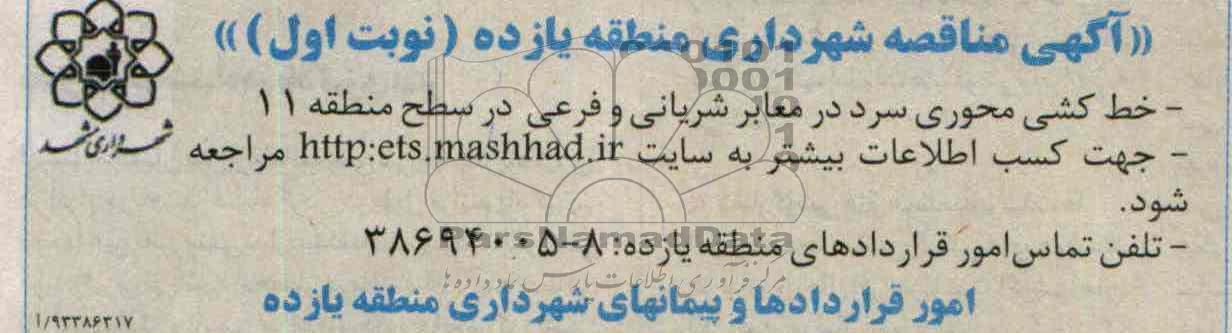 «آگهی مناقصه شهرداری منطقه یازده (نوبت اول)»
- خط کشی محوری سرد در معابر شریانی و فرعی در سطح منطقه ۱۱
- جهت کسب اطلاعات بیشتر به سایت http:ets.mashhad.ir مراجعه
شود.
- تلفن تماس امور قراردادهای منطقه یازده: ۸-۳۸۶۹۴۰۰۵
امور قراردادها و پیمانهای شهرداری منطقه یازده
شهرداری مشهد
۱/۹۳۳۸۶۳۱۷
0001
0001
ParsNamadData
مرکز فرآوری اطلاعات پارس نماد داده ها